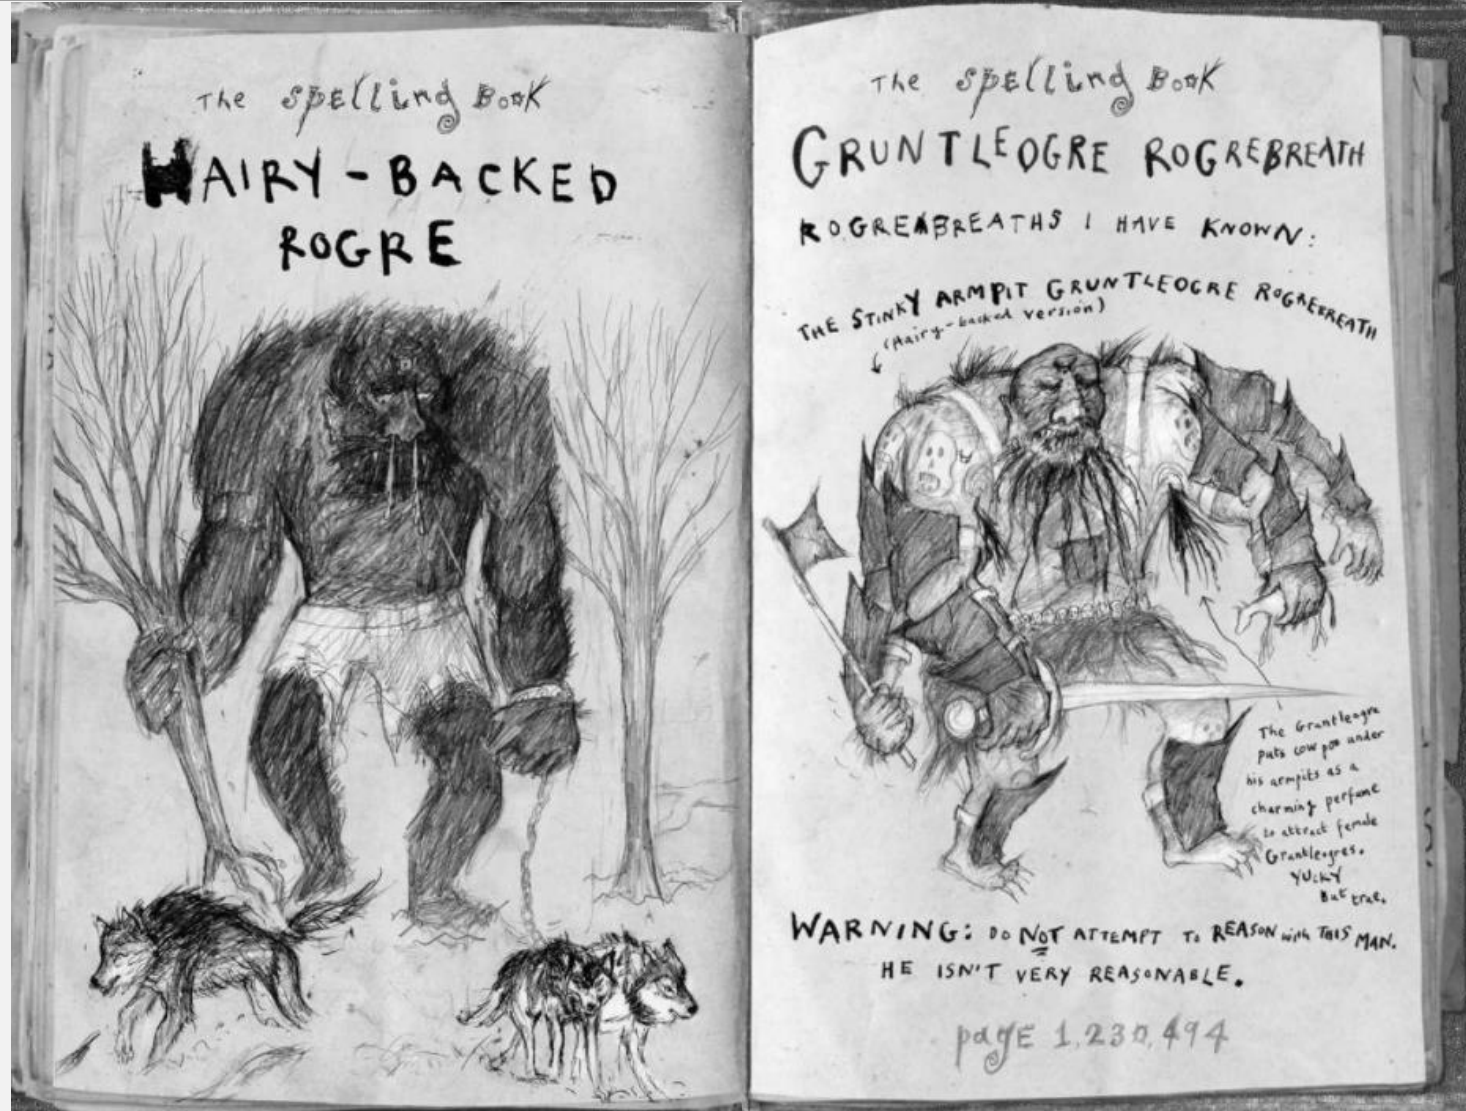 The Spelling Book
HAIRY-BACKED
ROGRE
The Spelling Book
GRUNTLEOGRE ROGREBREATH
ROGREBREATHS I HAVE KNOWN:
THE STINKY ARMPIT GRUNTLEOGRE ROGREBREATH
(Hairy-backed version)
The Gruntleogre
puts cow poo under
his armpits as a
charming perfume
to attract female
Gruntleogres.
YUCKY
But true.
WARNING: DO NOT ATTEMPT To REASON with THIS MAN.
HE ISN'T VERY REASONABLE.
page 1,230,494